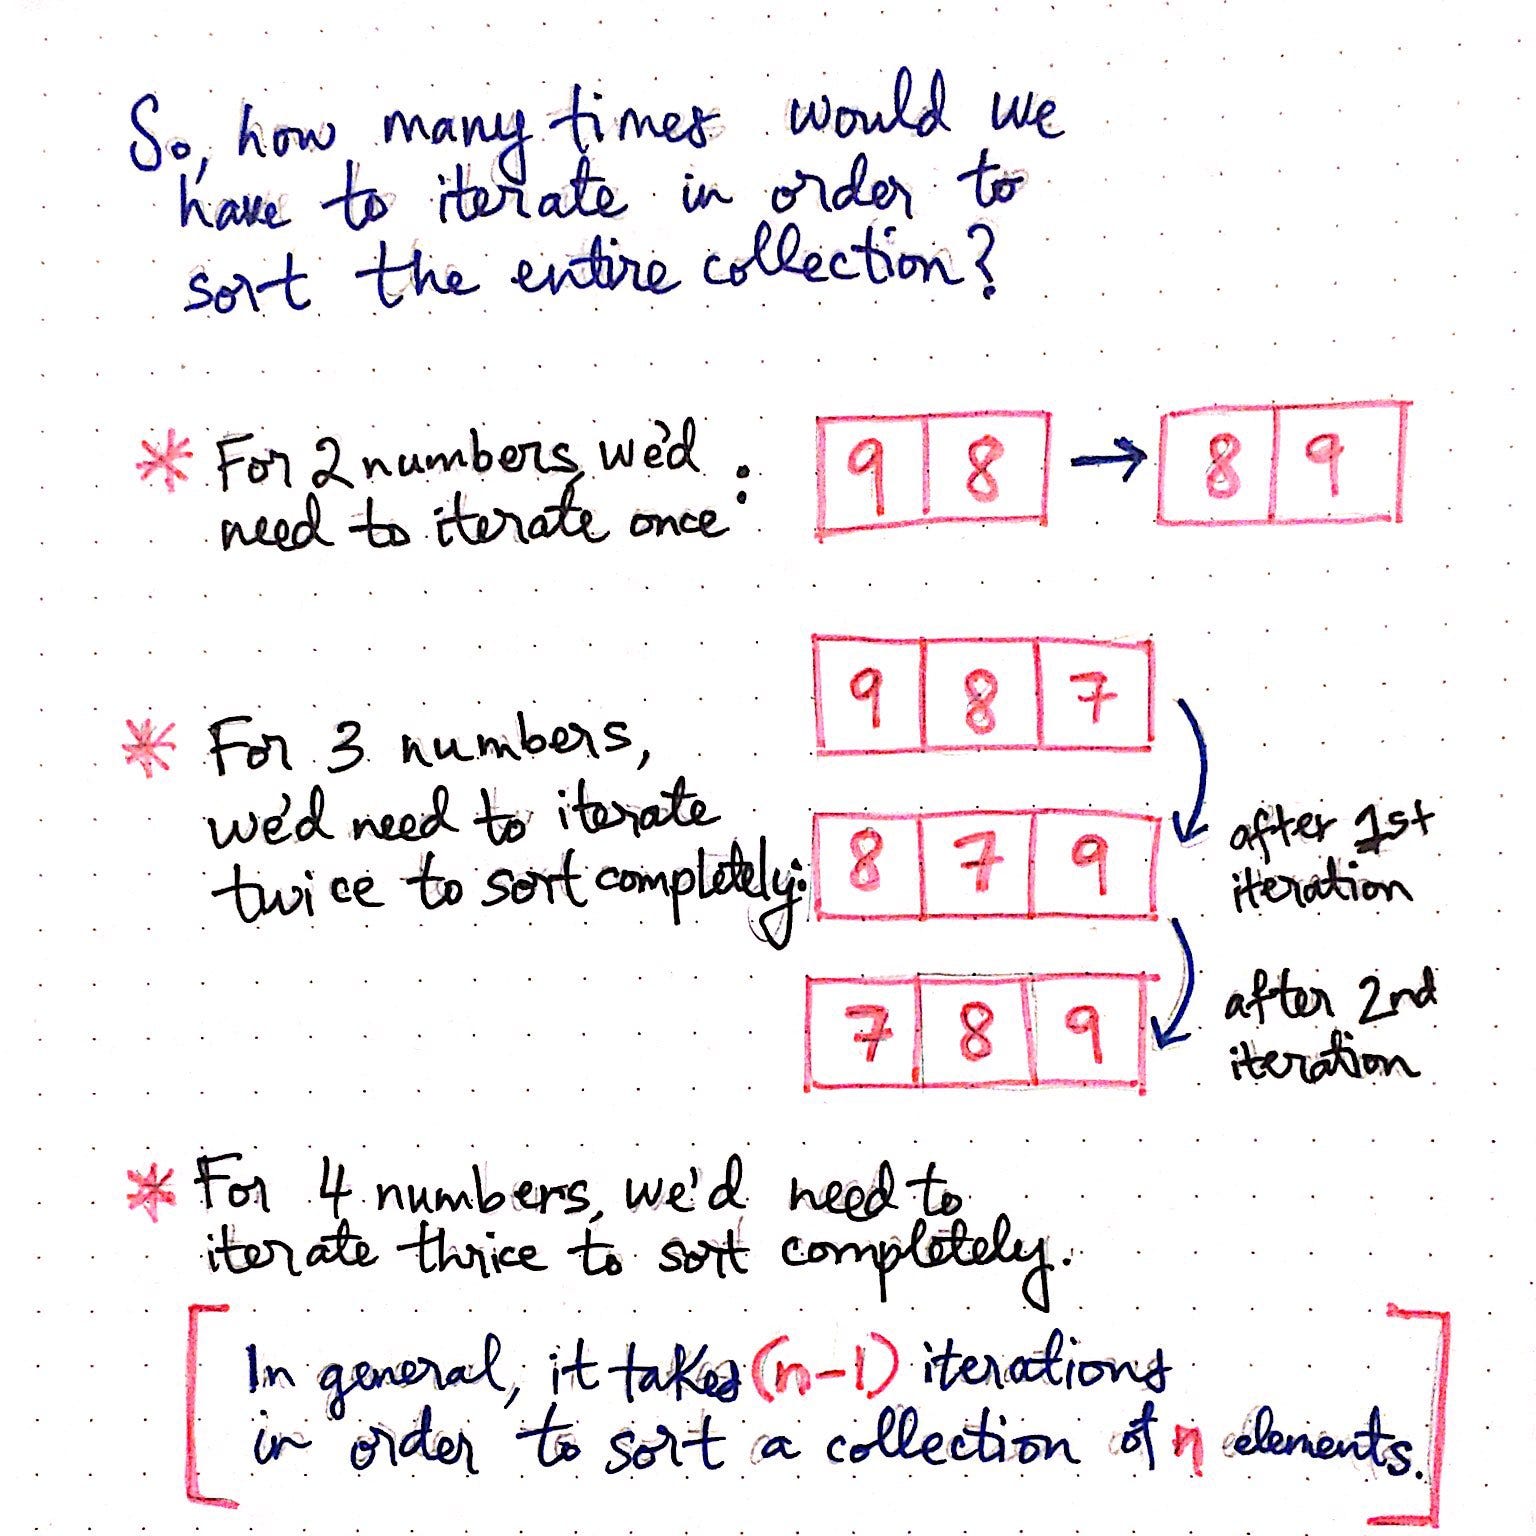 So, how many times would we
have to iterate in order to
sort the entire collection?
* For 2 numbers, we'd
need to iterate once :
9 8 → 8 9
9 8 7
* For 3 numbers,
we'd need to iterate
twice to sort completely:
8 7 9
after 1st
iteration
7 8 9
after 2nd
iteration
* For 4 numbers, we'd need to
iterate thrice to sort completely.
[In general, it takes (n-1) iterations
in order to sort a collection of n elements.]